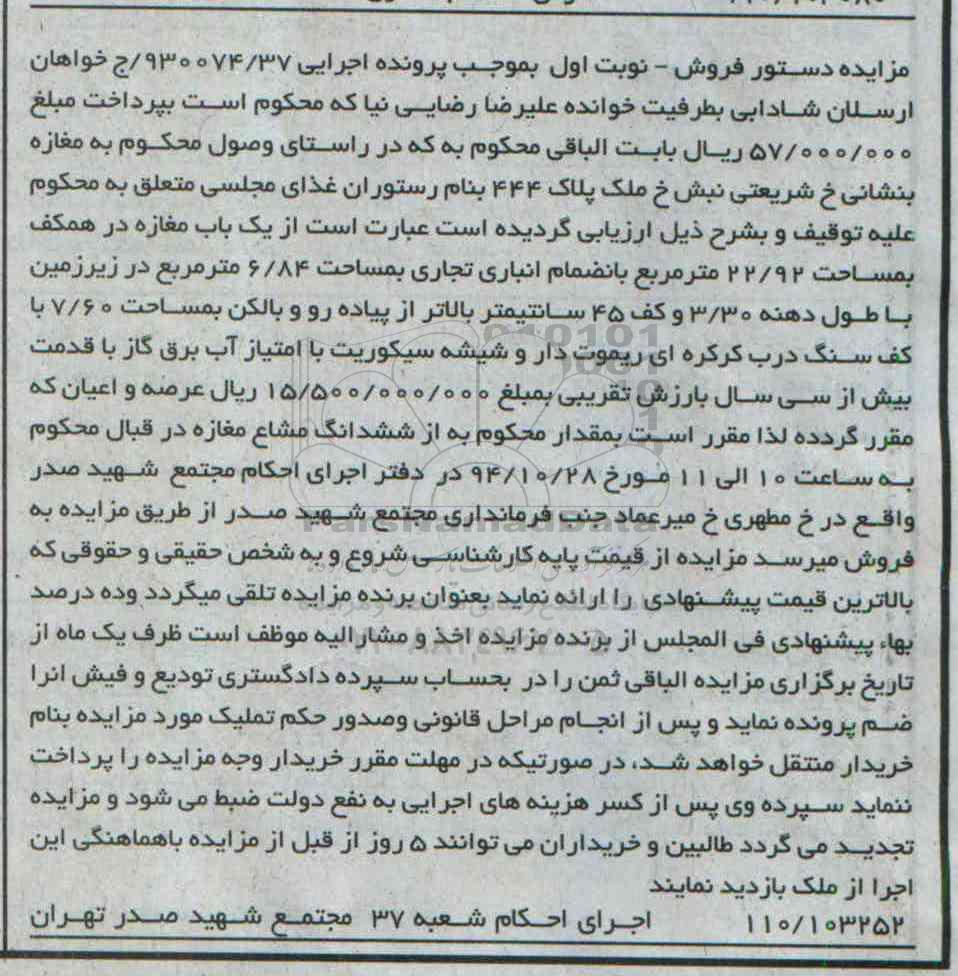 مزایده دستور فروش - نوبت اول بموجب پرونده اجرایی ۹۳۰۰۷۴/۳۷/ج خواهان
ارسلان شادابی بطرفیت خوانده علیرضا رضایی نیا که محکوم است بپرداخت مبلغ
۵۷/۰۰۰/۰۰۰ ریال بابت الباقی محکوم به که در راستای وصول محکوم به مغازه
بنشانی خ شریعتی نبش خ ملک پلاک ۴۴۴ بنام رستوران غذای مجلسی متعلق به محکوم
علیه توقیف و بشرح ذیل ارزیابی گردیده است عبارت است از یک باب مغازه در همکف
بمساحت ۲۲/۹۲ مترمربع بانضمام انباری تجاری بمساحت ۶/۸۴ مترمربع در زیرزمین
با طول دهنه ۳/۳۰ و کف ۴۵ سانتیمتر بالاتر از پیاده رو و بالکن بمساحت ۷/۶۰ با
کف سنگ درب کرکره ای ریموت دار و شیشه سیکوریت با امتیاز آب برق گاز با قدمت
بیش از سی سال بارزش تقریبی بمبلغ ۱۵/۵۰۰/۰۰۰/۰۰۰ ریال عرصه و اعیان که
مقرر گردده لذا مقرر است بمقدار محکوم به از ششدانگ مشاع مغازه در قبال محکوم
به ساعت ۱۰ الی ۱۱ مورخ ۹۴/۱۰/۲۸ در دفتر اجرای احکام مجتمع شهید صدر
واقع در خ مطهری خ میرعماد جنب فرمانداری مجتمع شهید صدر از طریق مزایده به
فروش میرسد مزایده از قیمت پایه کارشناسی شروع و به شخص حقیقی و حقوقی که
بالاترین قیمت پیشنهادی را ارائه نماید بعنوان برنده مزایده تلقی میگردد وده درصد
بهاء پیشنهادی فی المجلس از برنده مزایده اخذ و مشارالیه موظف است ظرف یک ماه از
تاریخ برگزاری مزایده الباقی ثمن را در بحساب سپرده دادگستری تودیع و فیش انرا
ضم پرونده نماید و پس از انجام مراحل قانونی وصدور حکم تملیک مورد مزایده بنام
خریدار منتقل خواهد شد، در صورتیکه در مهلت مقرر خریدار وجه مزایده را پرداخت
ننماید سپرده وی پس از کسر هزینه های اجرایی به نفع دولت ضبط می شود و مزایده
تجدید می گردد طالبین و خریداران می توانند ۵ روز از قبل از مزایده باهماهنگی این
اجرا از ملک بازدید نمایند
۱۱۰/۱۰۳۲۵۲ اجرای احکام شعبه ۳۷ مجتمع شهید صدر تهران